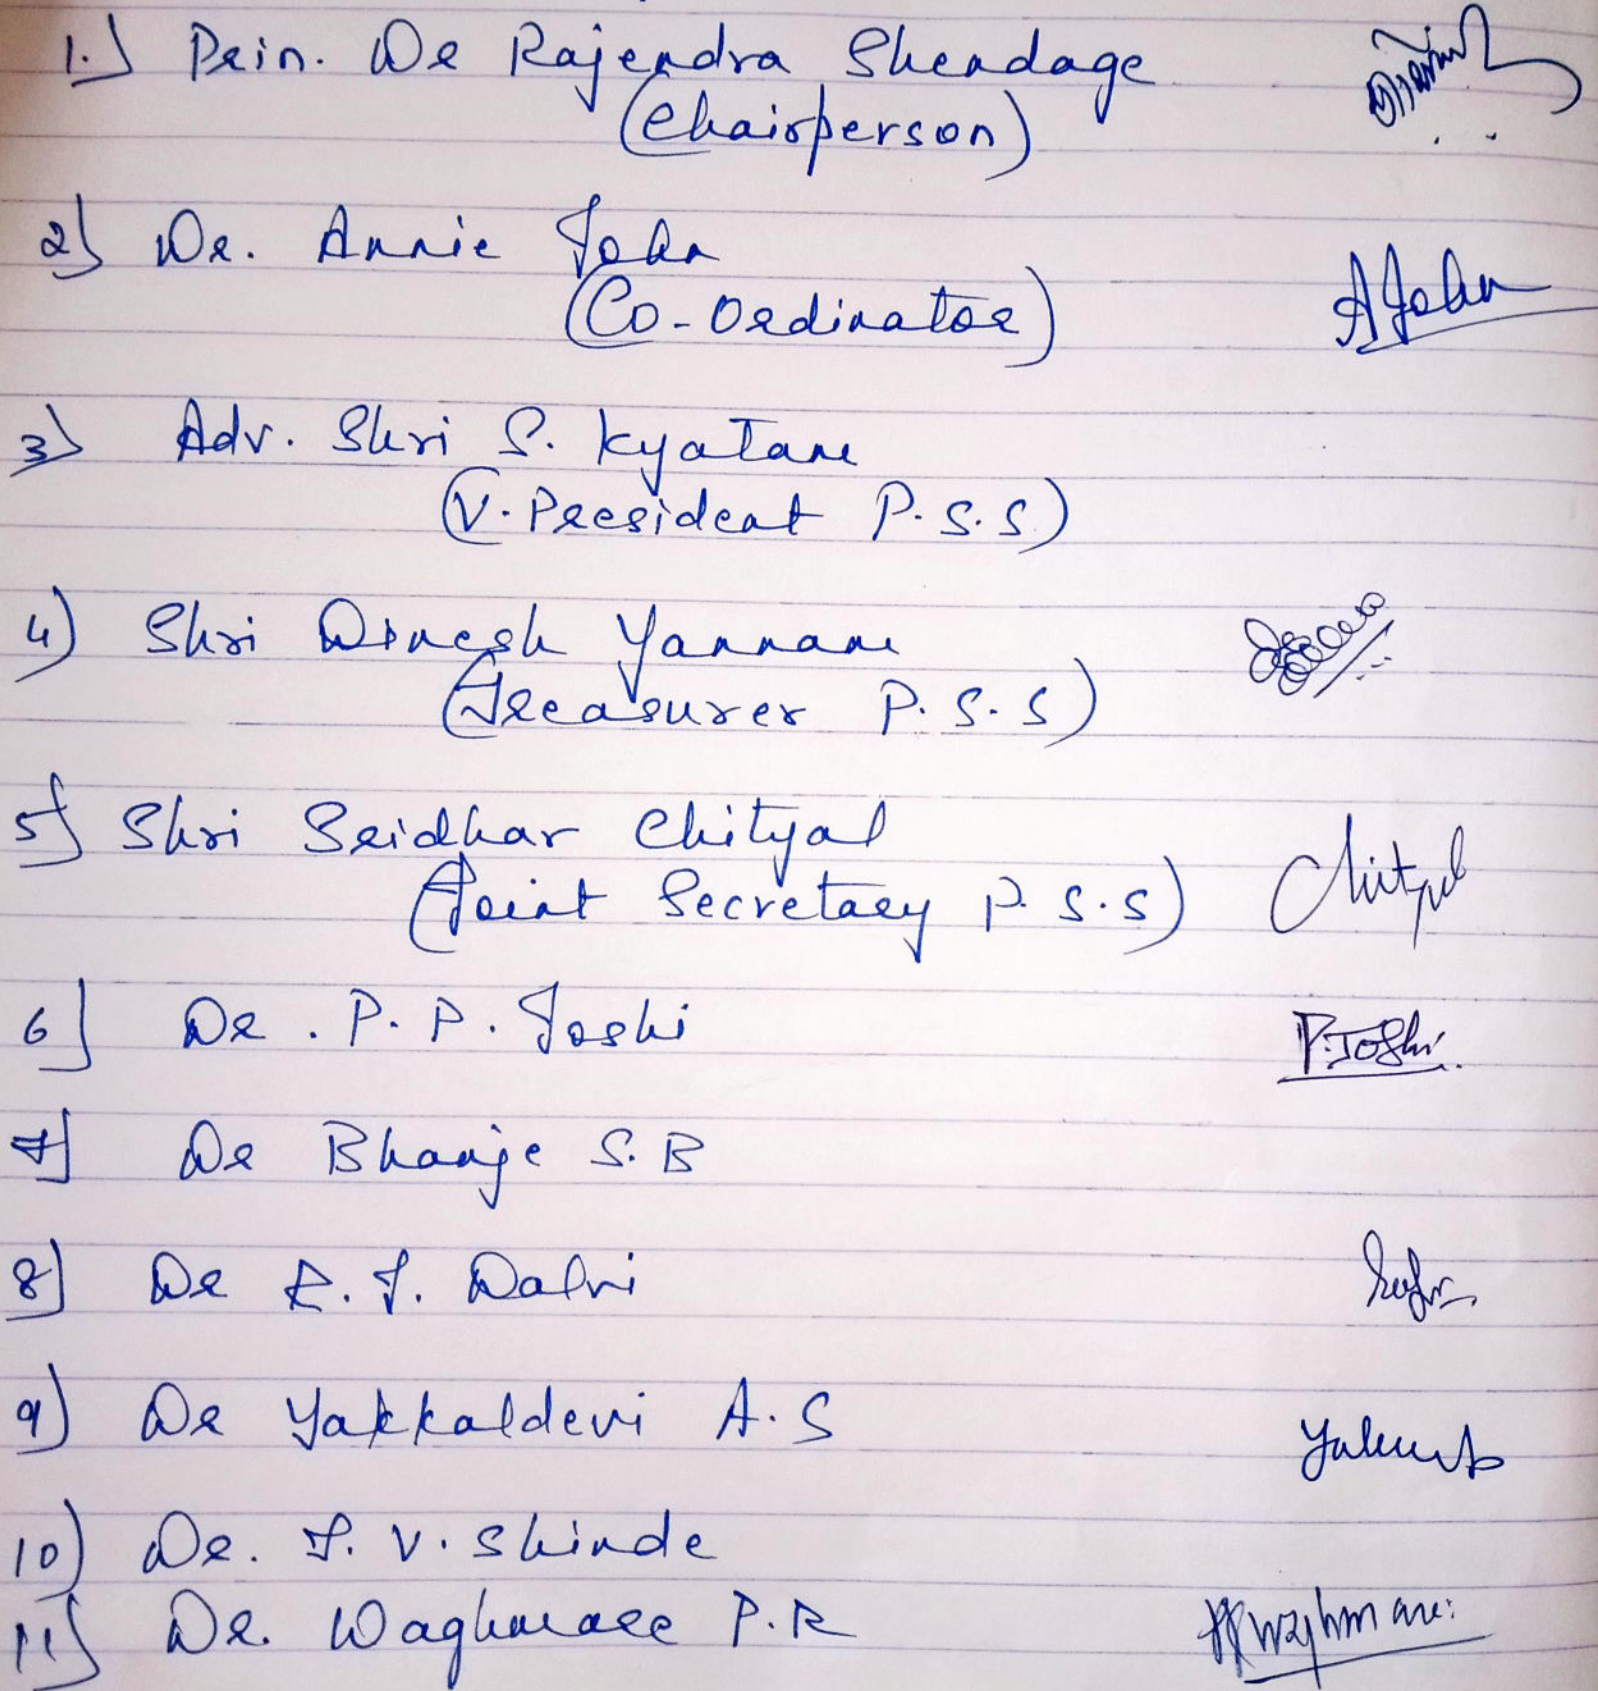 1.) Prin. Dr Rajendra Shendage
(Chairperson)
2) Dr. Annie John
(Co-Ordinator) A John
3) Adv. Shri S. Kyatam
(V. President P.S.S)
4) Shri Dinesh Yannam
(Treasurer P.S.S)
5) Shri Sridhar Chityal
(Joint Secretary P.S.S) Chityal
6) Dr. P. P. Joshi P. Joshi
7) Dr Bhanje S. B
8) Dr R. J. Dalvi
9) Dr Yakkaldevi A. S
10) Dr. J. V. Shinde
11) Dr. Waghmare P. R Waghmare